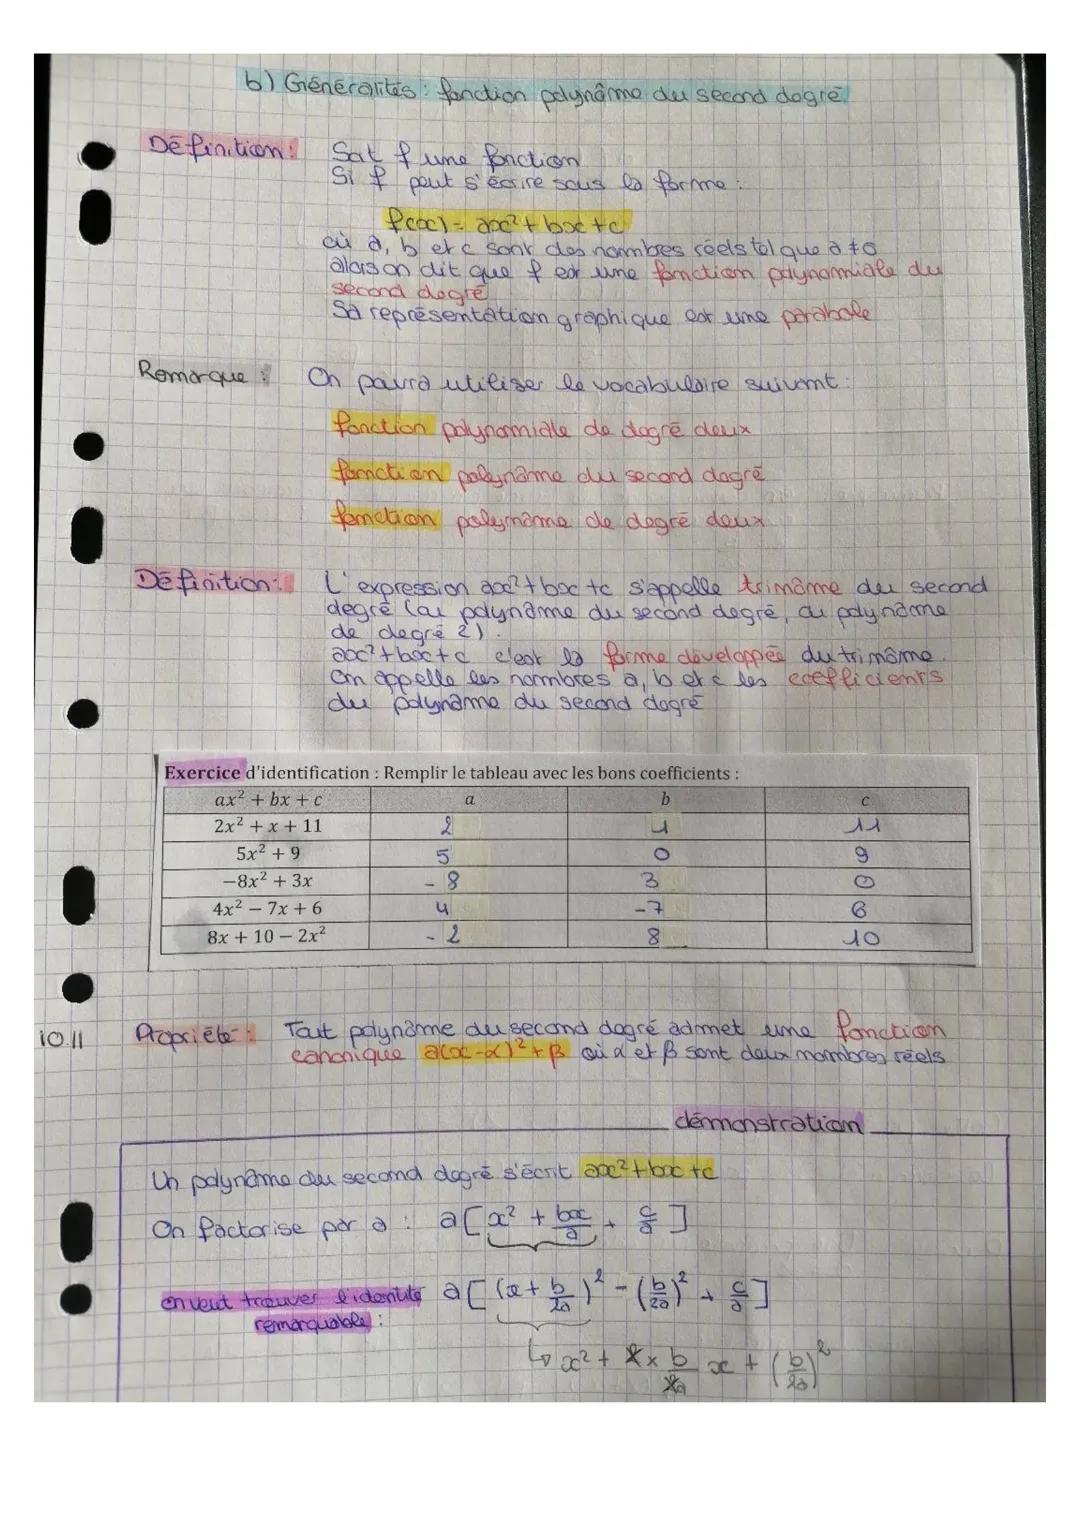 b) Généralités : fonction polynôme du second degré
Définition : Soit f une fonction
Si f peut s'écrire sous la forme :
f(x) = ax² + bx + c
où a, b et c sont des nombres réels tel que a ≠ 0
alors on dit que f est une fonction polynomiale du
second degré
Sa représentation graphique est une parabole
Remarque : On pourra utiliser le vocabulaire suivant :
fonction polynomiale de degré deux
fonction polynôme du second degré
fonction polynôme de degré deux
Définition : L'expression ax² + bx + c s'appelle trinôme du second
degré (ou polynôme du second degré, ou polynôme
de degré 2).
ax² + bx + c c'est la forme développée du trinôme.
On appelle les nombres a, b et c les coefficients
du polynôme du second degré
Exercice d'identification : Remplir le tableau avec les bons coefficients :
ax² + bx + c a b c
2x² + x + 11 2 1 11
5x² + 9 5 0 9
−8x² + 3x -8 3 0
4x² − 7x + 6 4 -7 6
8x + 10 − 2x² -2 8 10
10.11 Propriété : Tout polynôme du second degré admet une fonction
canonique a(x-α)² + β où α et β sont deux nombres réels
démonstration
Un polynôme du second degré s'écrit ax² + bx + c
On factorise par a : a[x² + bx/a + c/a]
on veut trouver l'identité a[(x + b/2a)² - (b/2a)² + c/a]
remarquable :
↳ x² + 2 × b/2a x + (b/2a)²